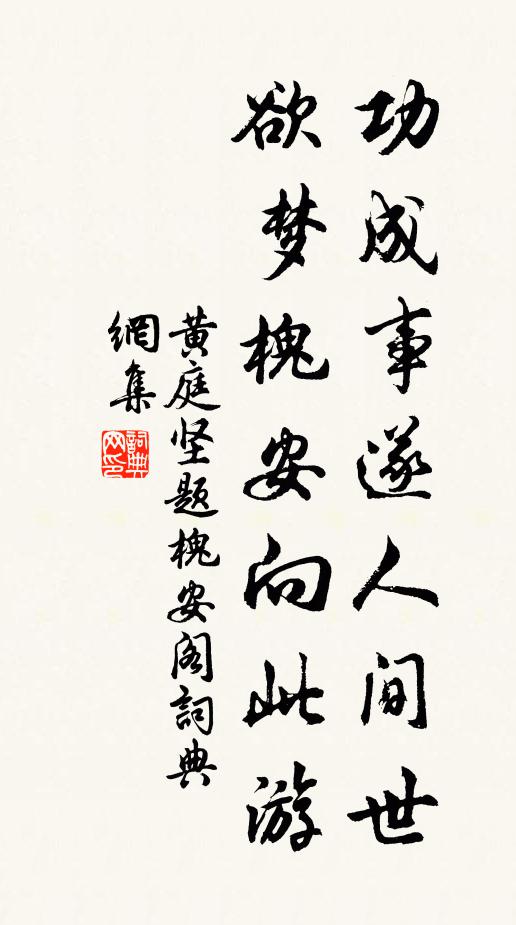 功成事遂人间世
欲梦槐安向此游
黄庭坚题槐安阁詞典
網集
詞典
网印